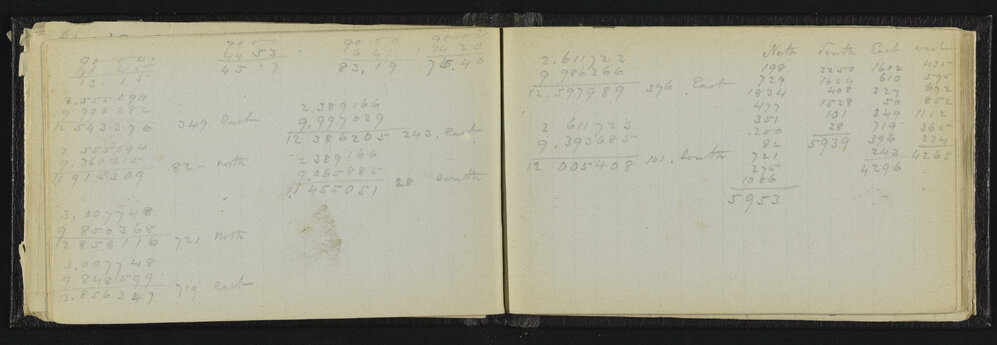 90.00 90.00 90.00
44 53 16 41 14 20
13 15 45 7 83.19 75.40
2.555094
9.988282
12 543376 349 East
2 555094
9.360215
11 915309 82 - North
3.007748
9 850368
12 858116 721 North
3.007748
9 848599
12.856347 719 East
2.389166
9.997039
12 386205 243. East
2 389166
9.065885
11 455051 28 South
2.611723
9 986266
12.597989 396 East
2 611723
9.393685
12 005408 101. South
Noth South East west
198 2250 1602 435
729 1624 610 595
1834 408 327 672
477 1528 50 852
351 101 349 1112
200 28 719 365
82 5939 396 234
721 243 4265
275 4296
1086
5953